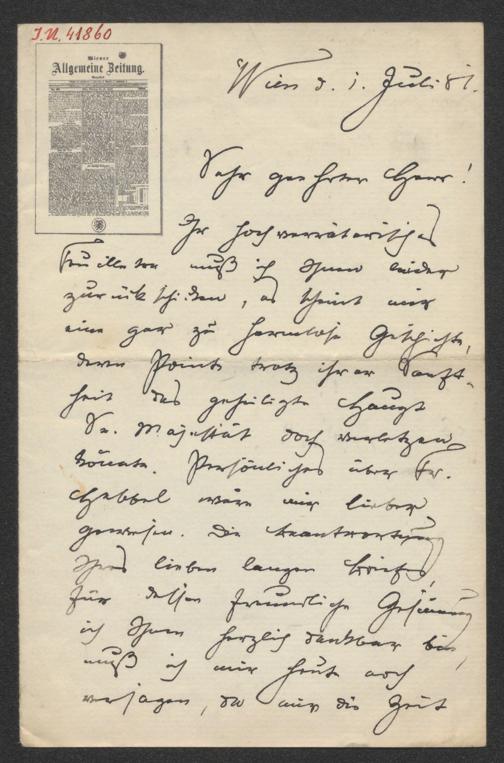 J.N. 41860
Wiener
Allgemeine Zeitung.
Wien d. 1. Juli 81.
Sehr geehrter Herr!
Ihr hochverräterisches
Feuilleton muß ich Ihnen leider
zurückschicken, es scheint mir
eine gar zu harmlose Geschichte,
deren Pointe trotz ihrer Sanft-
heit das geheiligte Haupt
Sr. Majestät doch verletzen
könnte. Persönliches über Fr.
Hebbel wäre mir lieber
gewesen. Die Beantwortung
Ihres lieben langen Briefes,
für dessen freundliche Gesinnung
ich Ihnen herzlich dankbar bin,
muß ich mir heute noch
versagen, da mir die Zeit